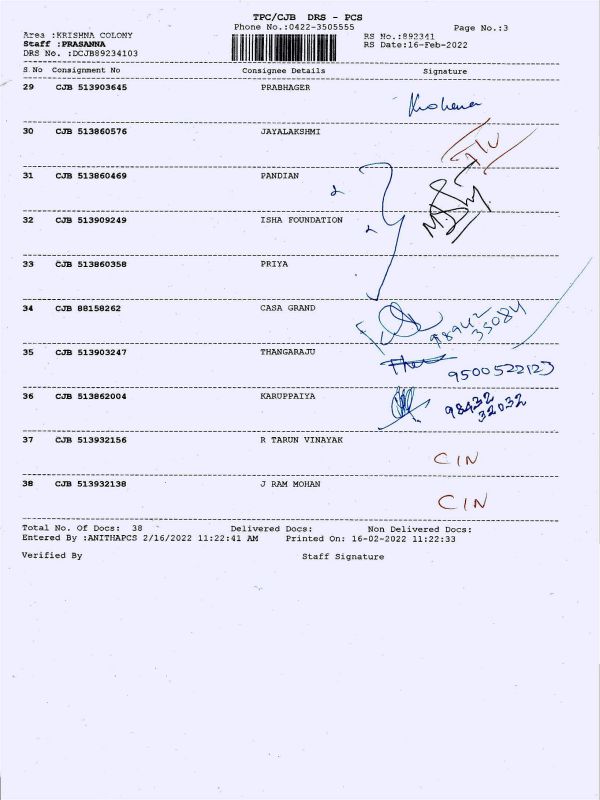 TPC/CJB DRS - PCS
Phone No.:0422-3505555
Page No.:3
Area :KRISHNA COLONY
RS No.:892341
Staff :PRASANNA
RS Date:16-Feb-2022
DRS No. :DCJB89234103
S.No Consignment No Consignee Details Signature
29 CJB 513903645 PRABHAGER
30 CJB 513860576 JAYALAKSHMI
31 CJB 513860469 PANDIAN
32 CJB 513909249 ISHA FOUNDATION
33 CJB 513860358 PRIYA
34 CJB 88158262 CASA GRAND
98942
35084
35 CJB 513903247 THANGARAJU
9500522123
36 CJB 513862004 KARUPPAIYA
98432
32032
37 CJB 513932156 R TARUN VINAYAK
CIN
38 CJB 513932138 J RAM MOHAN
CIN
Total No. Of Docs: 38 Delivered Docs: Non Delivered Docs:
Entered By :ANITHAPCS 2/16/2022 11:22:41 AM Printed On: 16-02-2022 11:22:33
Verified By Staff Signature